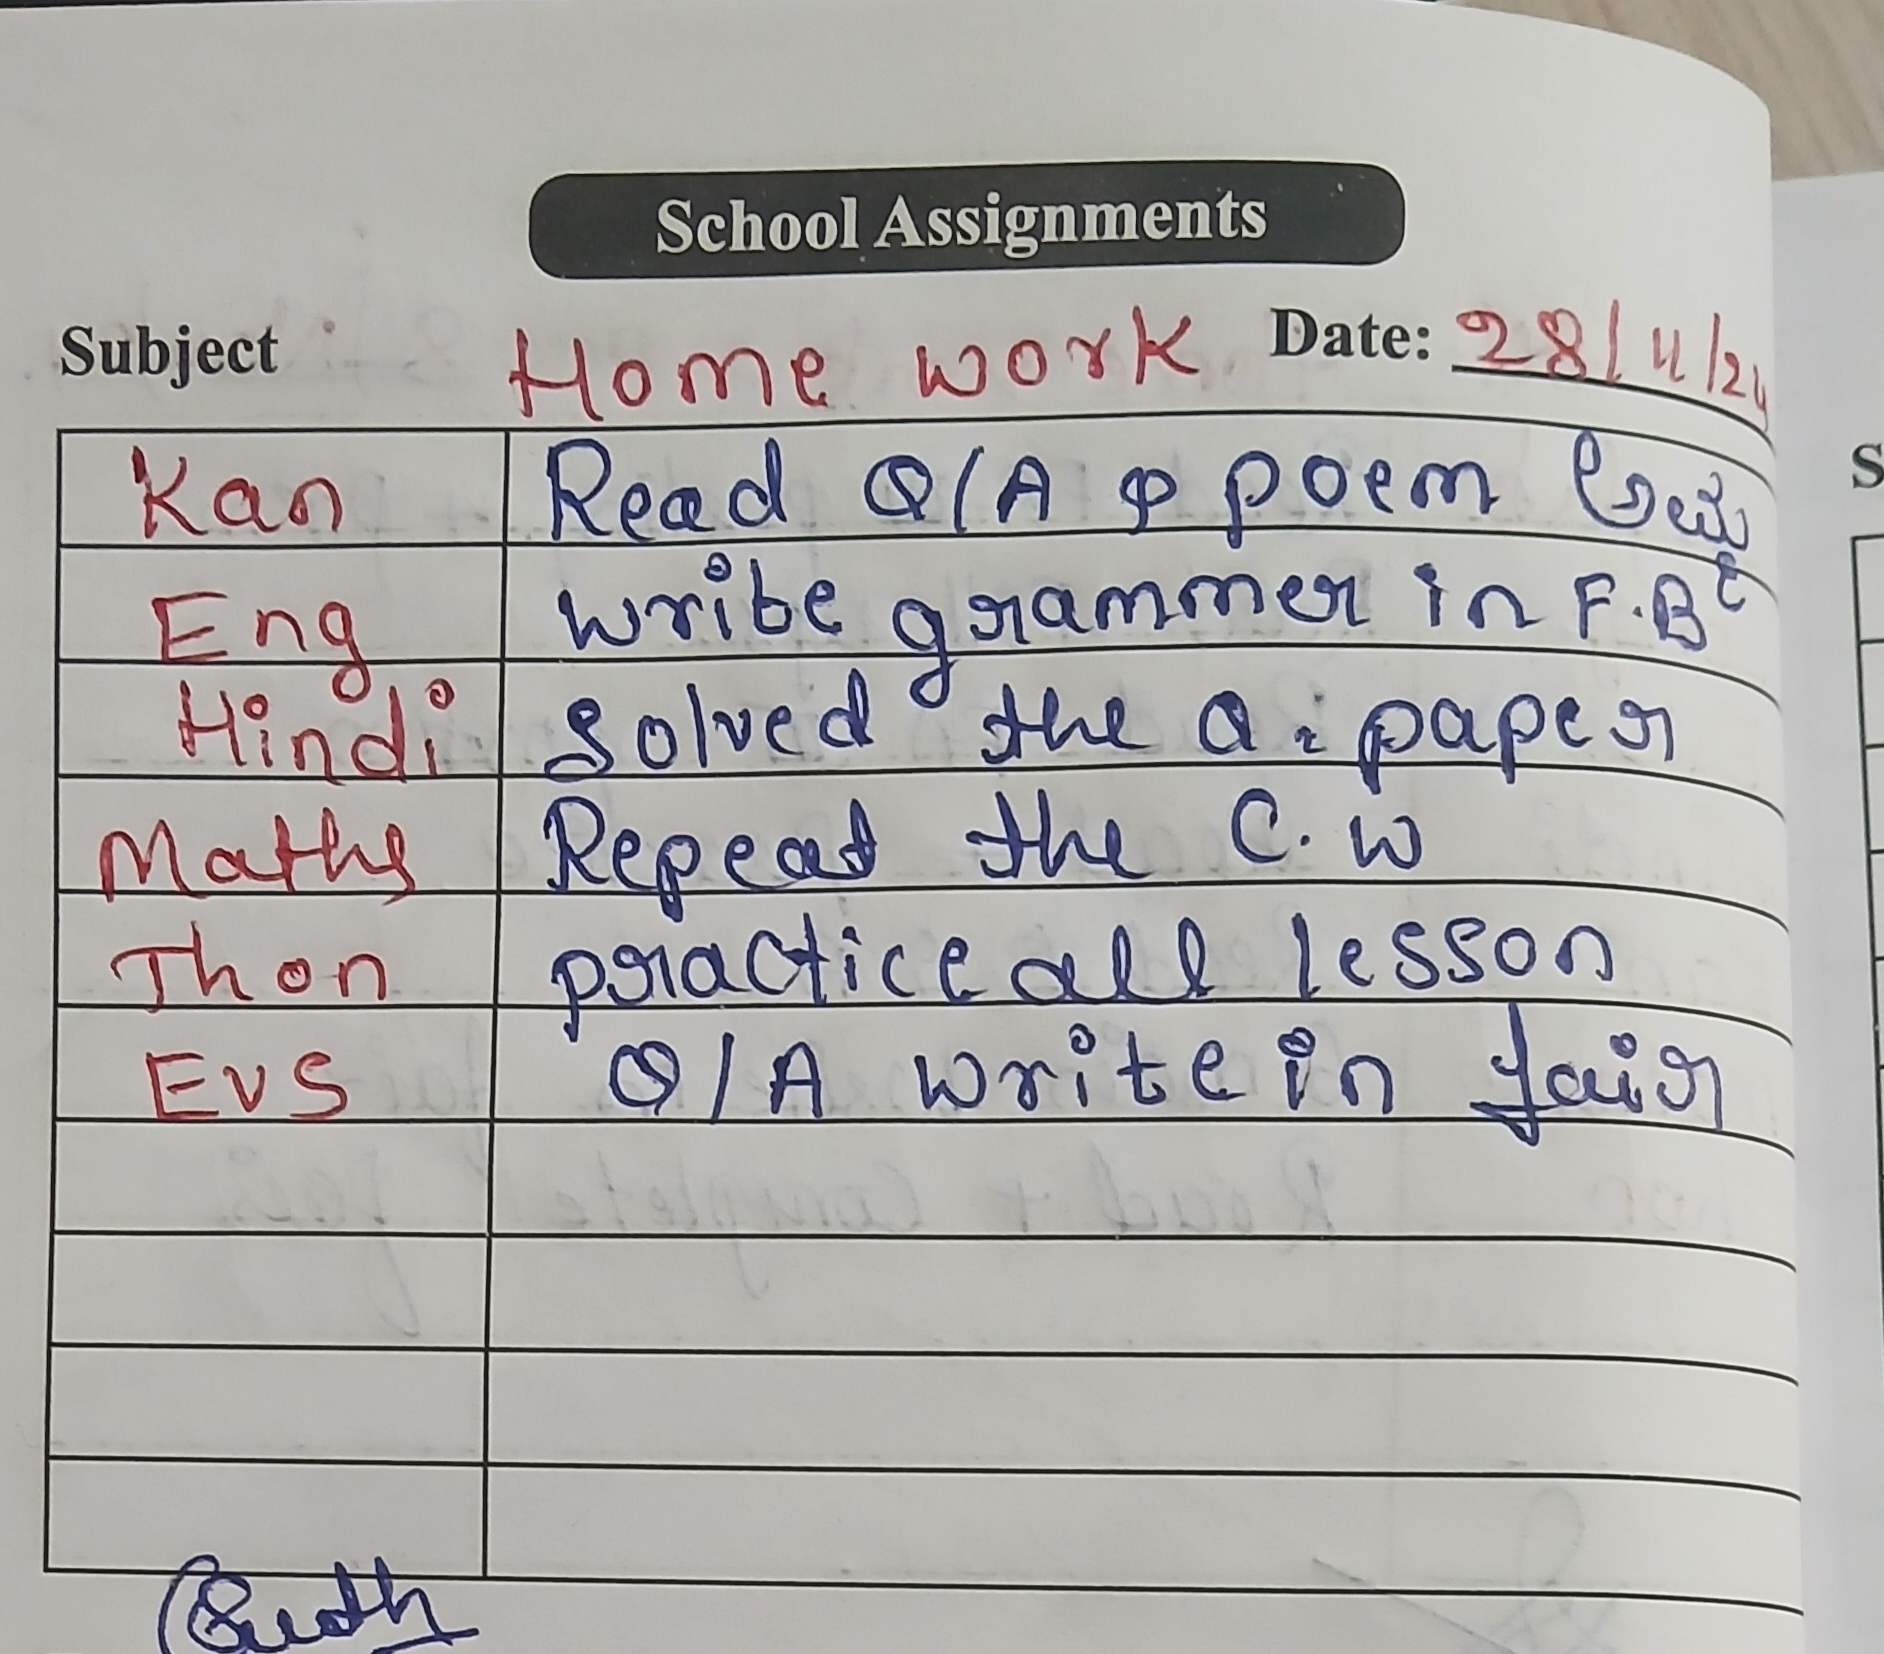 School Assignments
Subject Home work Date: 28/11/24
Kan Read Q/A & poem
Eng write grammer in F.B
Hindi Solved the Q. paper
Maths Repeat the C.W
Thon practice all lesson
EVS Q/A write in fair
S